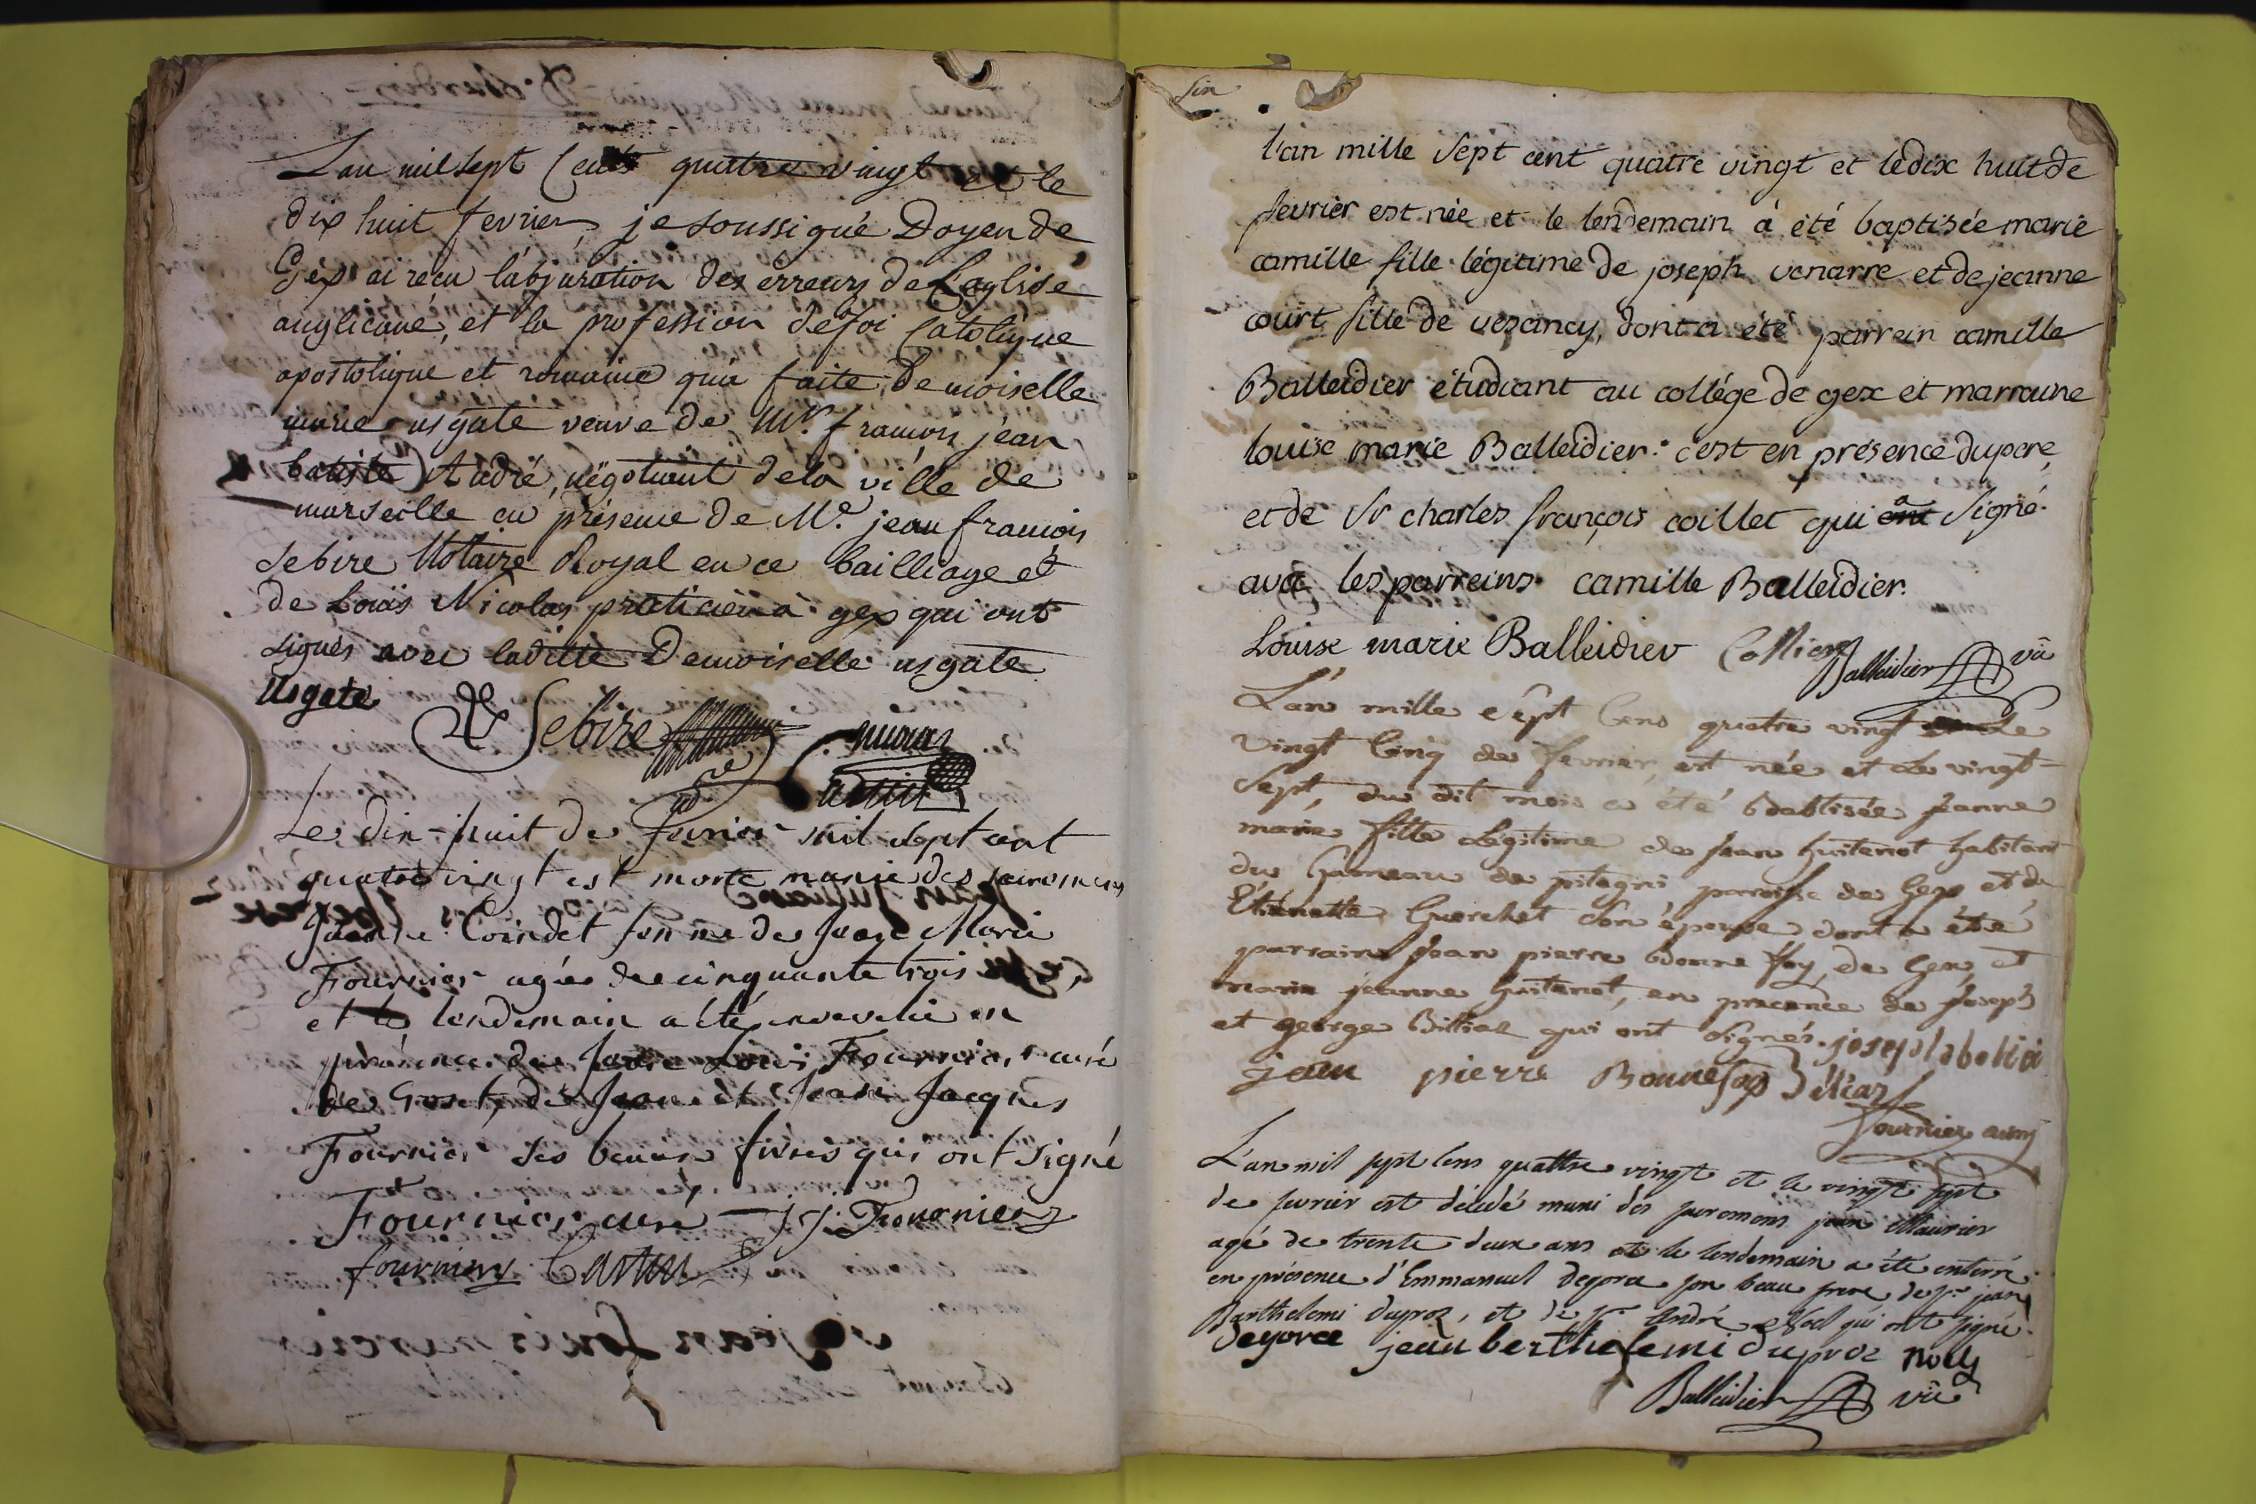 L'an mil sept Cents quatre vingt et le
dix huit fevrier je soussigné Doyen de
Gex ai réçu l'abjuration des érreurs de L'eglise
anglicane, et la profession de foi Catolique
apostolique et romaine qu'a faite, Demoiselle
marie usgate veuve de Mr. francois jean
batiste Andrié, négotiant de la ville de
marseille en présence de Me. jean francois
Sebire Notaire Royal en ce bailliage et
de Loüis Nicolas praticien à gex qui ont
signés avec ladite Demoiselle usgate
Usgate Sebire
Le dix-huit de fevrier mil sept cent
quatre vingt est morte munie des sacremens
Coindet femme de Marie
Fournier agée de cinquante trois
et le lendemain a été ensevelie en
présence de Louis Fournier curé
de de Jean et Jean Jacques
Fournier ses beaux freres qui ont signé
Fournier curé - j j. Fournier
fournier Castin
fin
l'an mille sept cent quatre vingt et le dix huit de
fevrier est née et le lendemain à été baptisée marie
camille fille légitime de joseph venarre et de jeanne
court fille de vezancy, dont a été parrein camille
Balleidier étudiant au collége de gex et marraine
louise marie Balleidier: c'est en présence du pere,
et de Sr charles françois coillet qui a ont signé.
avec les parreins. camille Balleidier.
Louise marie Balleidier Collier
Balleidier vû
L'an mille sept Cens quatre vingt Le
vingt Cinq de fevrier, est née et Le vingt-
Sept, du dit mois a été baptisée jeanne
marie fille Légitime de jean huitenot habitant
du hameau de pitegni parroisse de Gex et de
Etiennette Guerchet son épouse dont a été
parrain jean pierre bonne foy, de Gex, et
marie jeanne huitenot, en presence de joseph
et george Billiaz qui ont signés. joseph
jean pierre Bonnefoy Billiaz
fournier
L'an mil sept cens quattre vingt et le vingt sept
de fevrier est décédé muni des sacremens jean Maurier
agé de trente deux ans et le lendemain a été enterré
en présence d'Emmanuel Degorce son beau frere de Sr jean
Barthelemi duproz, et de Sr André Noel qui ont signé.
Degorce jean berthelemi duproz Noel
Balleidier vû